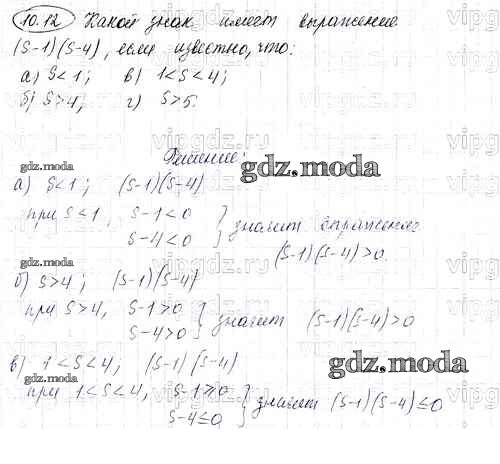 10.12 Какой знак имеет выражение
(S-1)(S-4), если известно, что:
а) S<1; в) 1<S<4;
б) S>4; г) S>5.
Решение:
gdz.moda
gdz.moda
а) S<1; (S-1)(S-4)
при S<1, S-1<0 } значит выражение
S-4<0
(S-1)(S-4)>0
gdz.moda
б) S>4; (S-1)(S-4)
при S>4, S-1>0 } значит (S-1)(S-4)>0
S-4>0
в) 1<S<4; (S-1)(S-4)
gdz.moda
gdz.moda
при 1<S<4, S-1≥0 } значит (S-1)(S-4)≤0
S-4≤0
vipgdz.ru